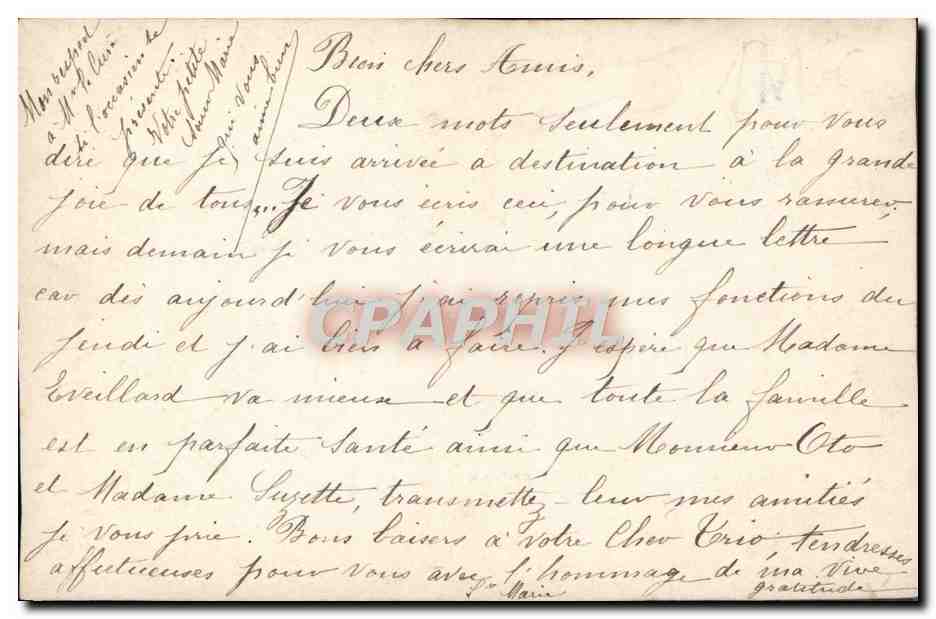 Bien chers Amis,
Deux mots seulement pour vous
dire que je suis arrivée a destination à la grande
joie de tous... Je vous écris ceci, pour vous rassurer,
mais demain je vous écrirai une longue lettre
car dès aujourd'hui j'ai repris mes fonctions du
jeudi et j'ai bien à faire. J'espère que Madame
Eveillard va mieux et que toute la famille
est en parfaite santé ainsi que Monsieur Oto
et Madame Suzette, transmettez-leur mes amitiés
je vous prie. Bons baisers à votre Cher Trio, tendresses
affectueuses pour vous avec l'hommage de ma vive
gratitude
Sr Marie
Mon respect
à Mr le Curé
si l'occasion se
présente.
Votre petite
soeur Marie
qui vous
aime bien
CPAPHIL